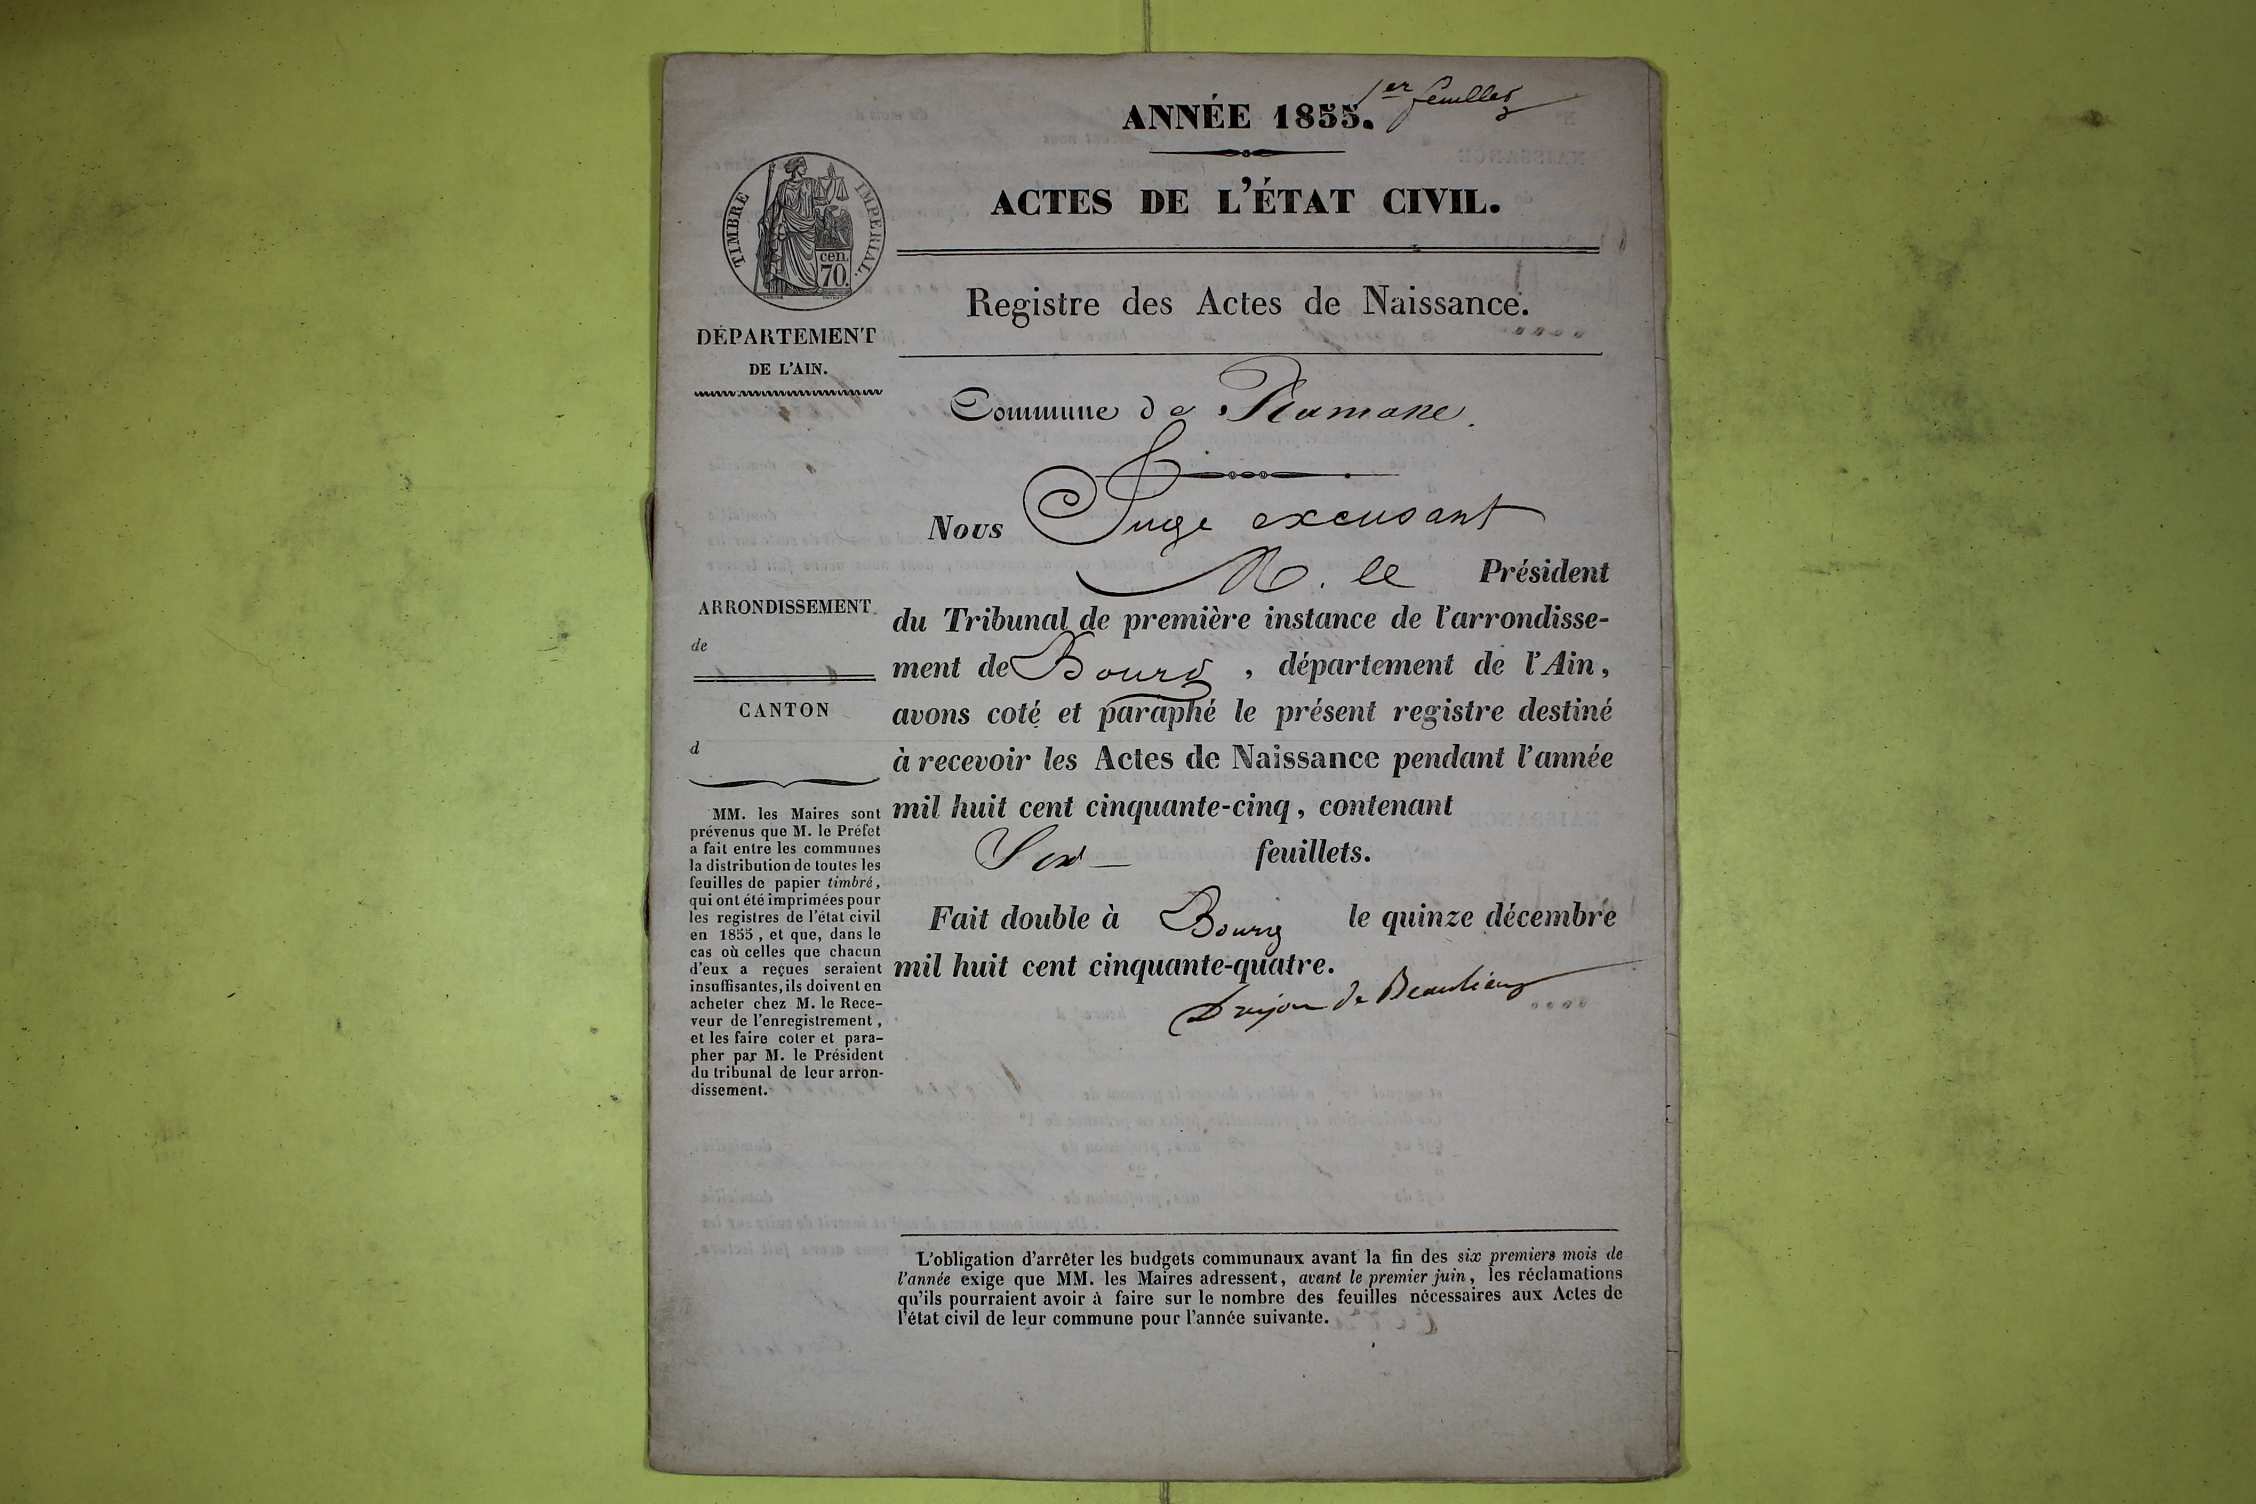 1er feuillet
ANNÉE 1855.
ACTES DE L'ÉTAT CIVIL.
TIMBRE IMPÉRIAL.
cen.
70.
Registre des Actes de Naissance.
DÉPARTEMENT
DE L'AIN.
Commune de Ramasse.
Nous Juge excusant
M. le Président
ARRONDISSEMENT
de
du Tribunal de première instance de l'arrondisse-
ment de Bourg, département de l'Ain,
avons coté et paraphé le présent registre destiné
à recevoir les Actes de Naissance pendant l'année
mil huit cent cinquante-cinq, contenant
Six feuillets.
Fait double à Bourg le quinze décembre
mil huit cent cinquante-quatre.
Drujon de Beaulieu
CANTON
d
MM. les Maires sont
prévenus que M. le Préfet
a fait entre les communes
la distribution de toutes les
feuilles de papier timbré,
qui ont été imprimées pour
les registres de l'état civil
en 1855, et que, dans le
cas où celles que chacun
d'eux a reçues seraient
insuffisantes, ils doivent en
acheter chez M. le Rece-
veur de l'enregistrement,
et les faire coter et para-
pher par M. le Président
du tribunal de leur arron-
dissement.
L'obligation d'arrêter les budgets communaux avant la fin des six premiers mois de
l'année exige que MM. les Maires adressent, avant le premier juin, les réclamations
qu'ils pourraient avoir à faire sur le nombre des feuilles nécessaires aux Actes de
l'état civil de leur commune pour l'année suivante.